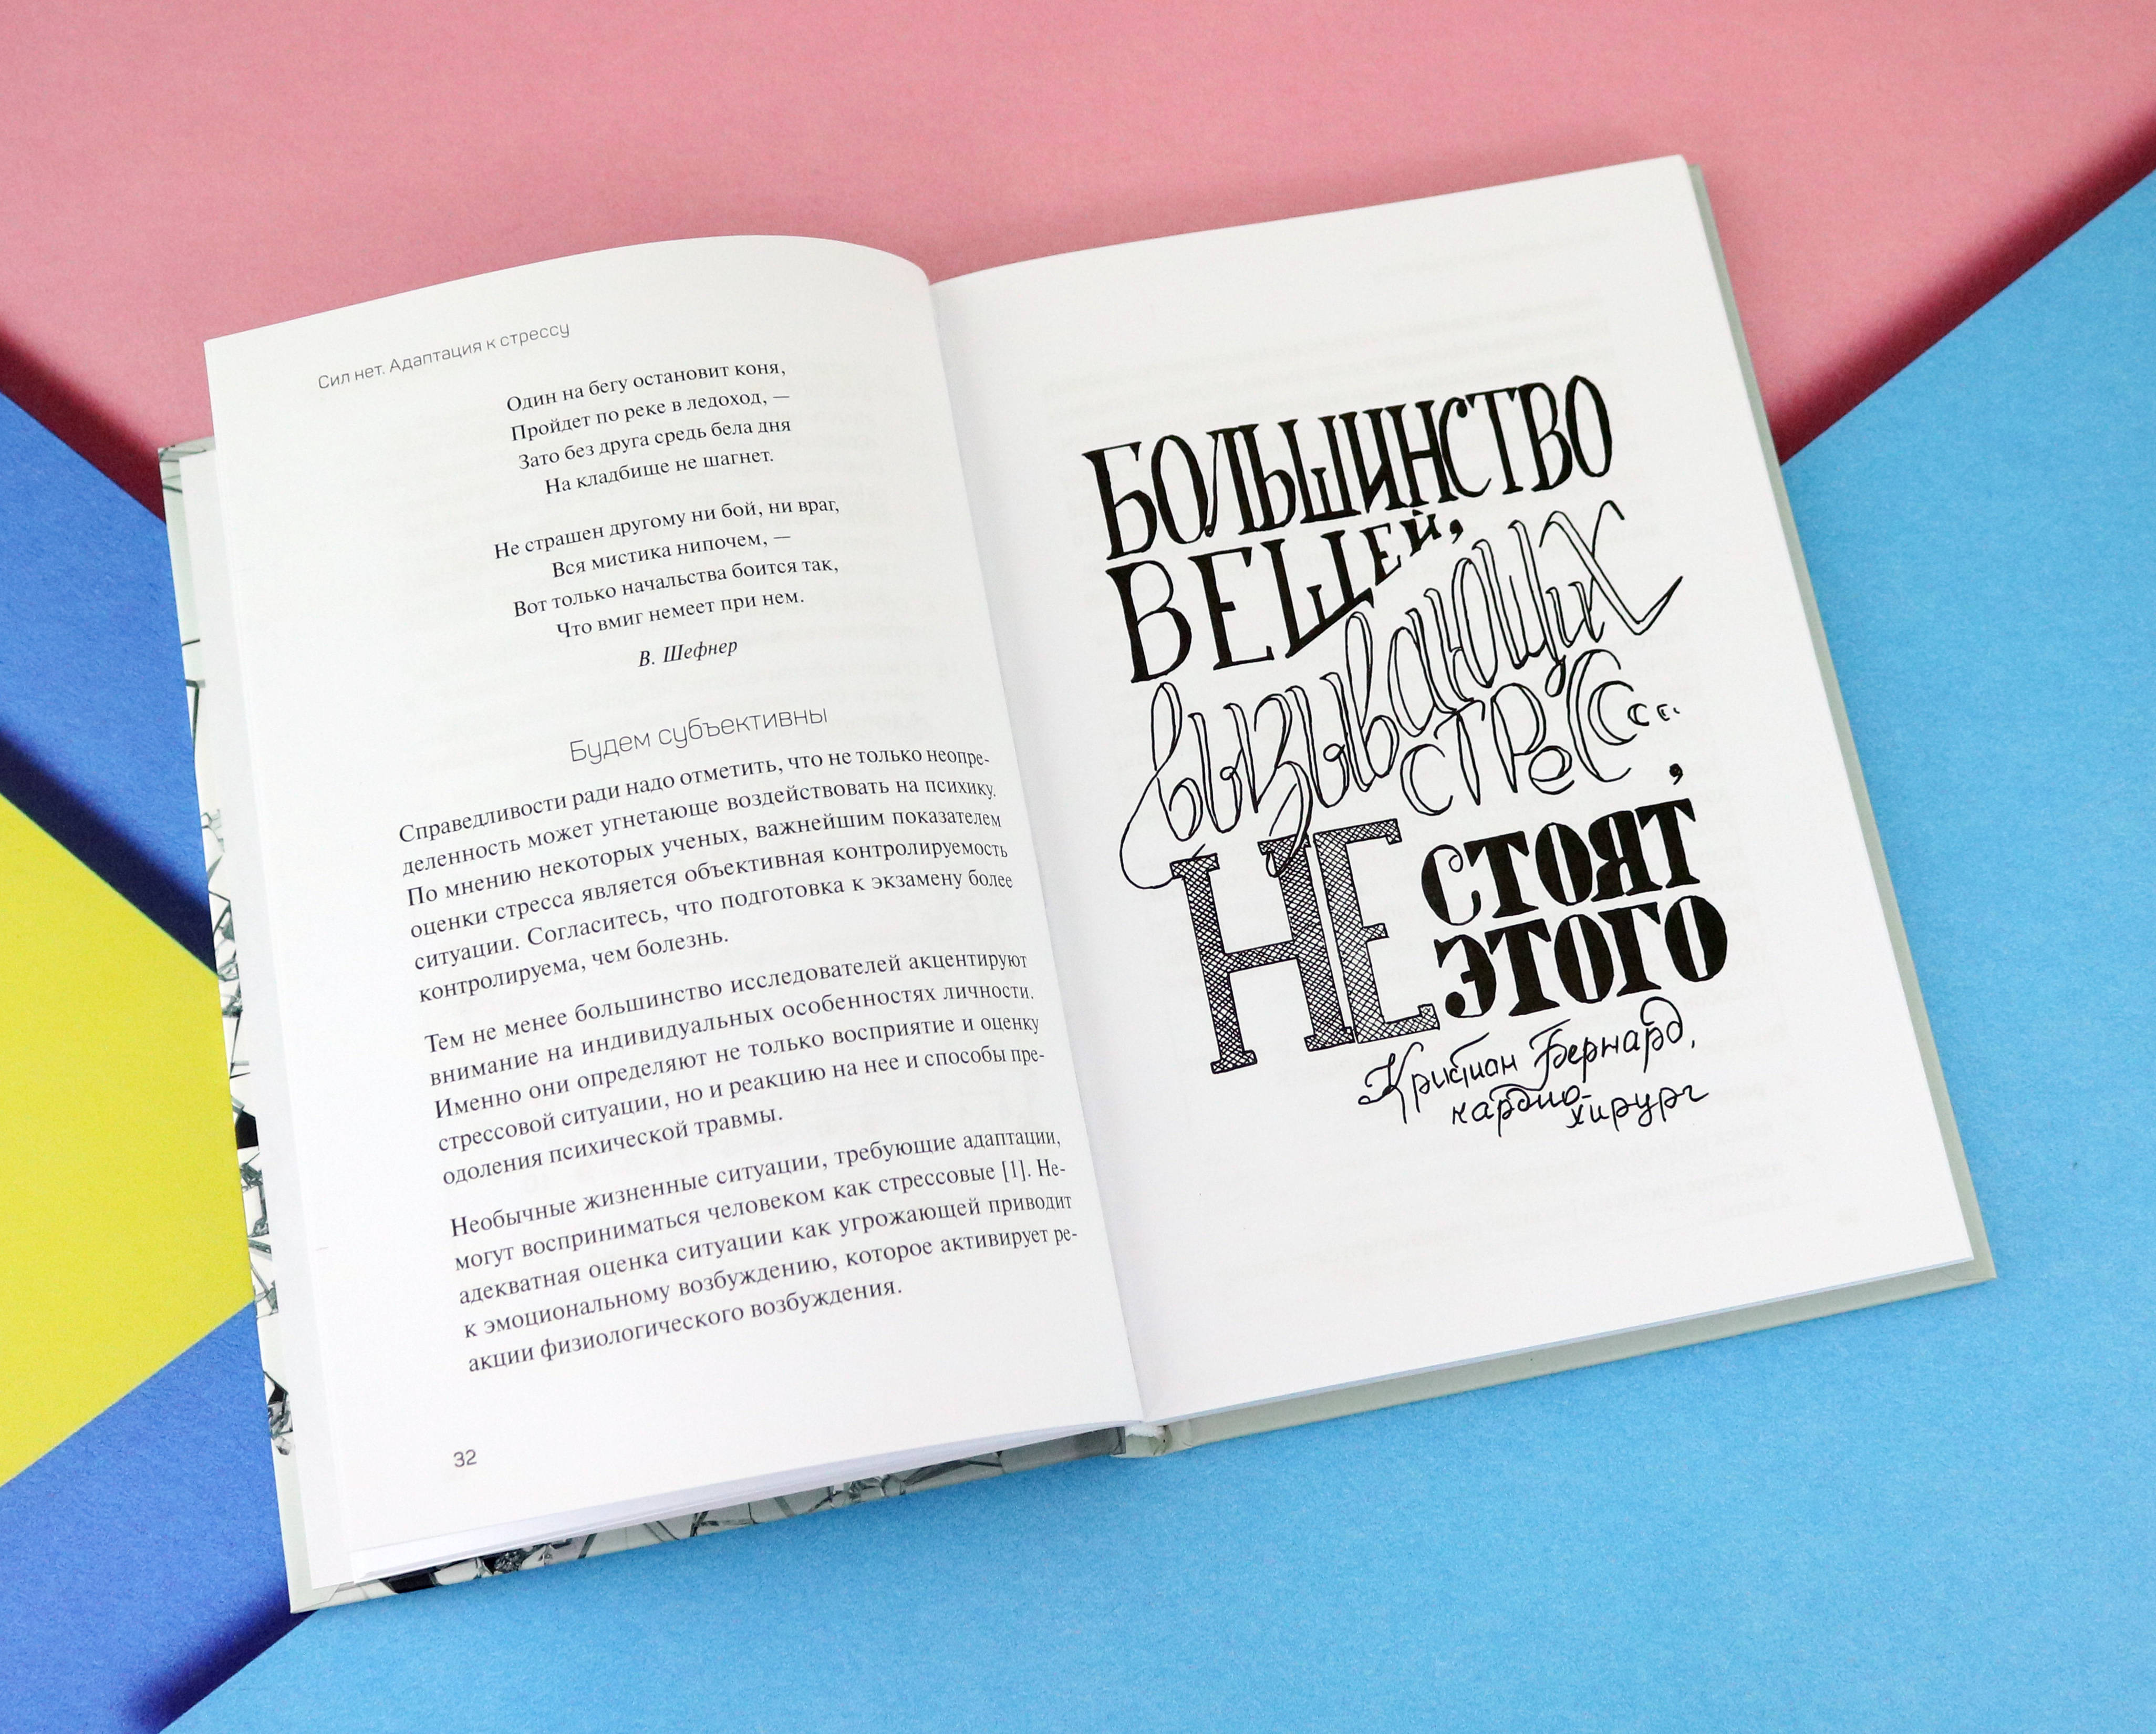 Сил нет. Адаптация к стрессу
Один на бегу остановит коня,
Пройдет по реке в ледоход, —
Зато без друга средь бела дня
На кладбище не шагнет.
Не страшен другому ни бой, ни враг,
Вся мистика нипочем, —
Вот только начальства боится так,
Что вмиг немеет при нем.
В. Шефнер
Будем субъективны
Справедливости ради надо отметить, что не только неопре-
деленность может угнетающе воздействовать на психику.
По мнению некоторых ученых, важнейшим показателем
оценки стресса является объективная контролируемость
ситуации. Согласитесь, что подготовка к экзамену более
контролируема, чем болезнь.
Тем не менее большинство исследователей акцентируют
внимание на индивидуальных особенностях личности.
Именно они определяют не только восприятие и оценку
стрессовой ситуации, но и реакцию на нее и способы пре-
одоления психической травмы.
Необычные жизненные ситуации, требующие адаптации,
могут восприниматься человеком как стрессовые [1]. Не-
адекватная оценка ситуации как угрожающей приводит
к эмоциональному возбуждению, которое активирует ре-
акции физиологического возбуждения.
32
БОЛЬШИНСТВО
ВЕЩЕЙ,
вызывающих
СТРеССсс..,
НЕ СТОЯТ
ЭТОГО
Кристиан Бернард,
кардио-
хирург